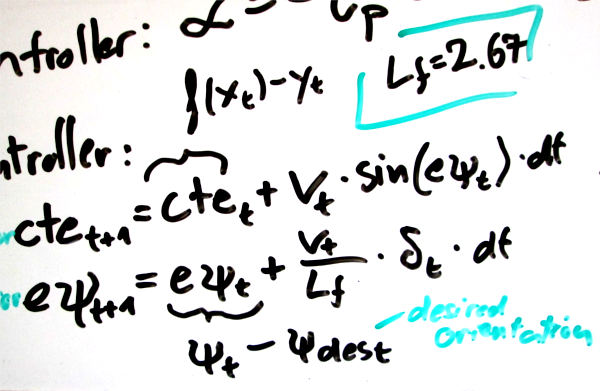 ntroller: α = - Cp
f(xₜ)-yₜ Lf=2.67
ntroller:
or cteₜ₊₁ = cteₜ + Vₜ · sin(eψₜ) · dt
or eψₜ₊₁ = eψₜ + Vₜ/Lf · δₜ · dt
ψₜ - ψdest desired
orientation